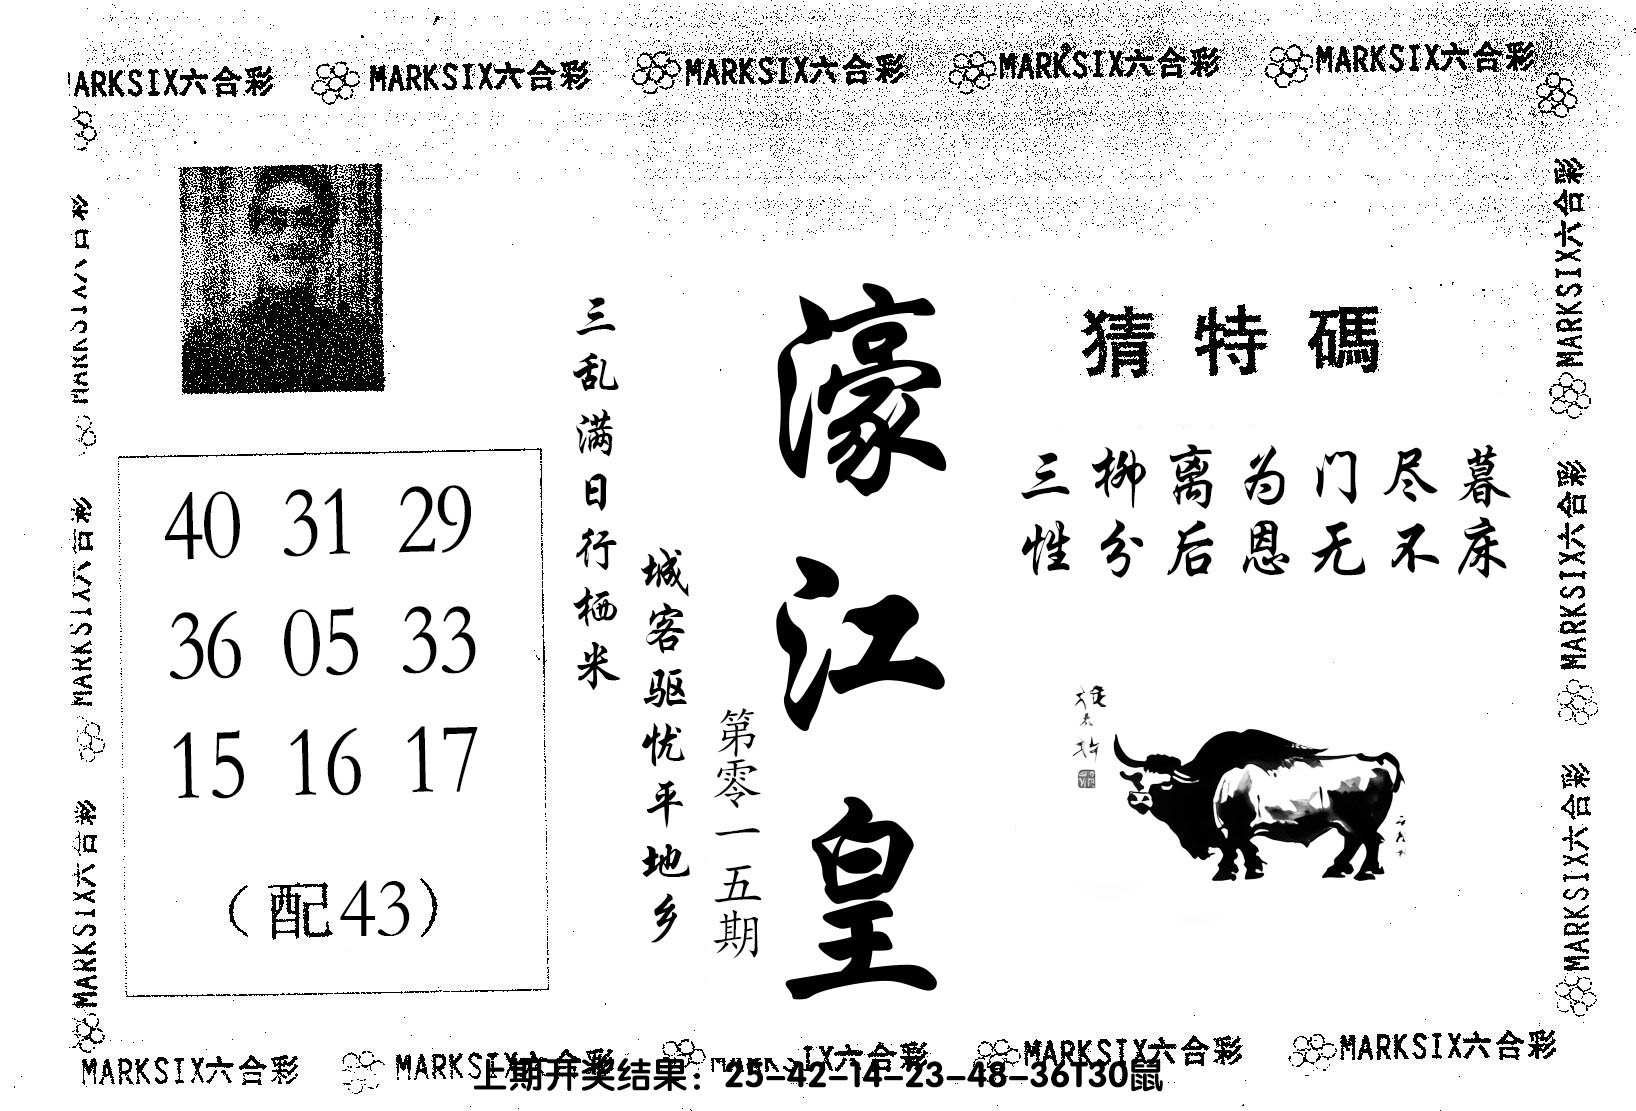 MARKSIX六合彩 MARKSIX六合彩 MARKSIX六合彩 MARKSIX六合彩 MARKSIX六合彩
猜特碼
三柳离为门尽暮
性分后恩无不床
濠江皇
第零一五期
城客驱忧平地乡
三乱满日行栖米
40 31 29
36 05 33
15 16 17
（配43）
MARKSIX六合彩
MARKSIX六合彩
MARKSIX六合彩
MARKSIX六合彩
MARKSIX六合彩
MARKSIX六合彩
MARKSIX六合彩 MARKSIX六合彩 MARKSIX六合彩 MARKSIX六合彩 MARKSIX六合彩
上期开奖结果：25-42-14-23-48-36T30鼠